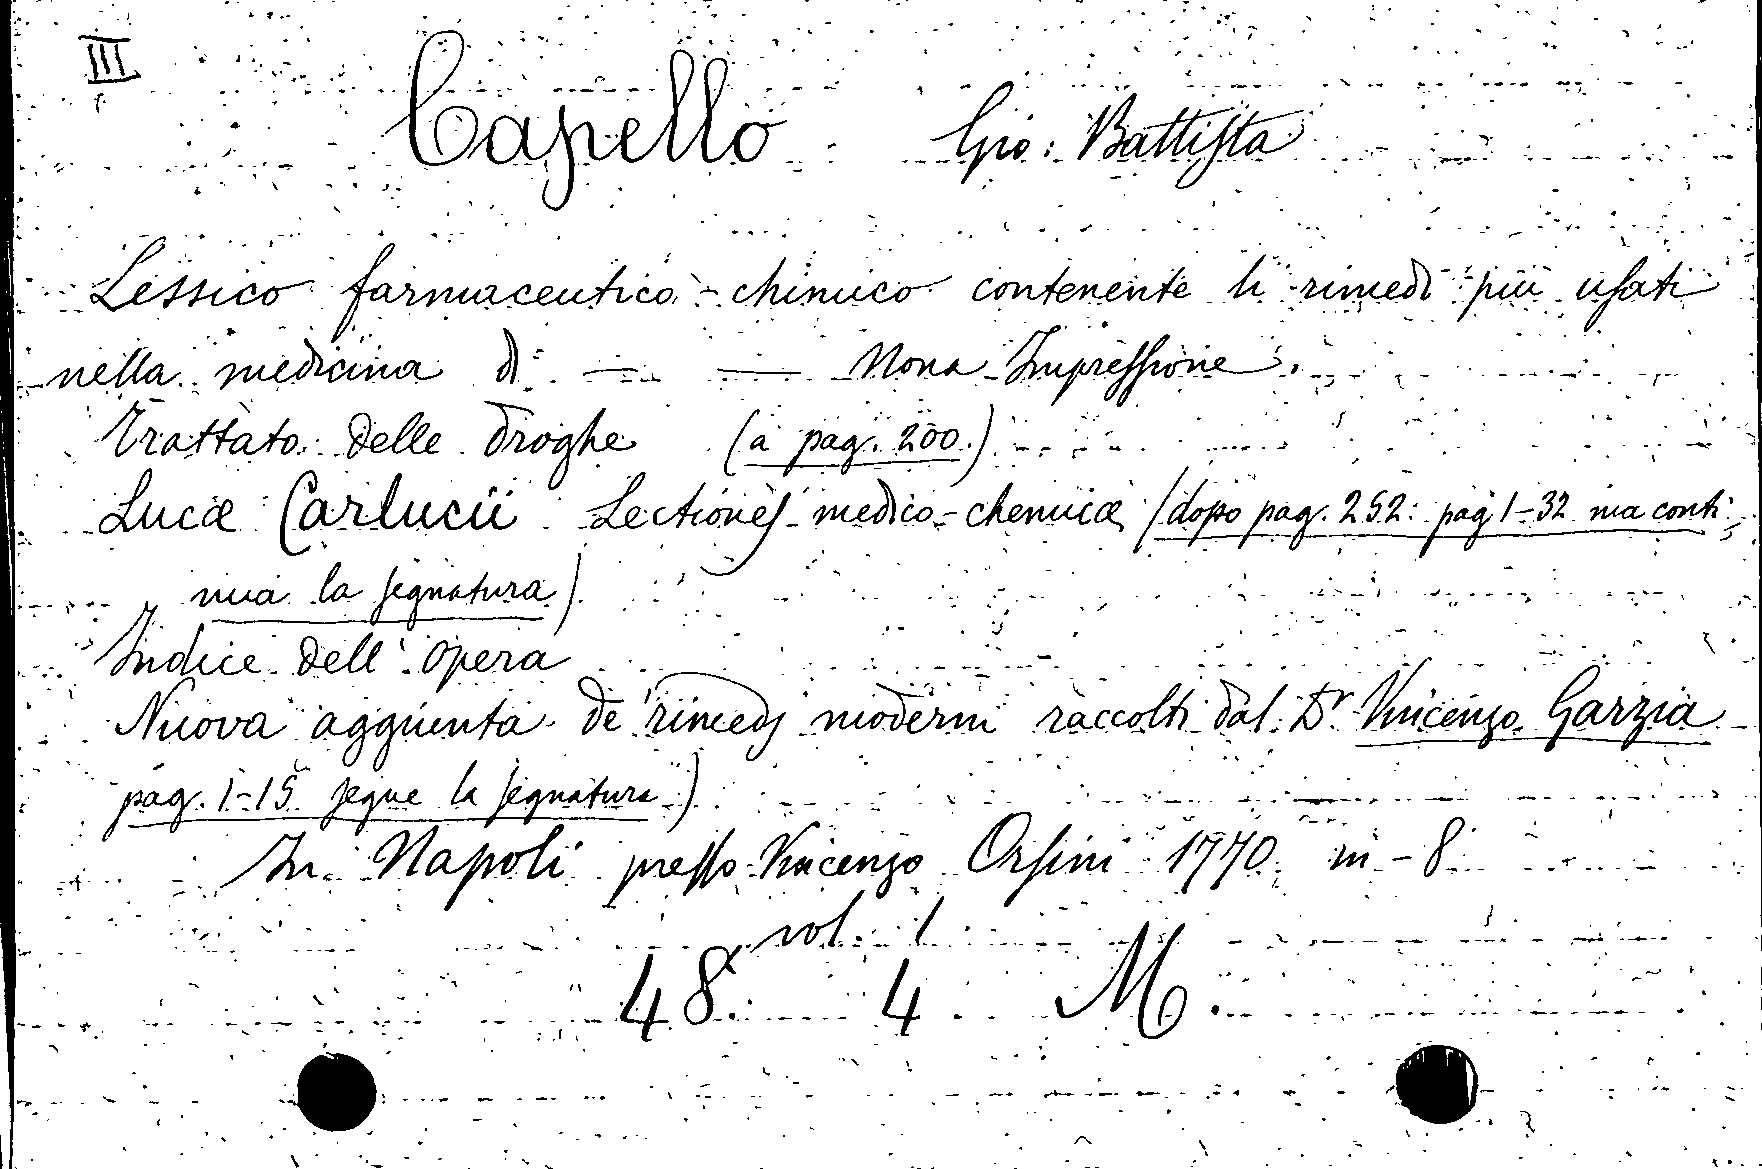 III
Capello Gio: Battista
Lessico farmaceutico-chimico contenente li rimedi più usati
nella medicina di — — Nona Impressione.
Trattato delle droghe (a pag. 200.)
Lucæ Carlucii Lectiones medico-chemicæ (dopo pag. 252: pag 1-32 ma conti-
nua la segnatura)
Indice dell'opera
Nuova aggiunta de' rimedj moderni raccolti dal Dr Vincenzo Garzia
pag. 1-15 segue la segnatura)
In Napoli presso Vincenzo Orsini 1770. in-8
vol. 1
48. 4. M.